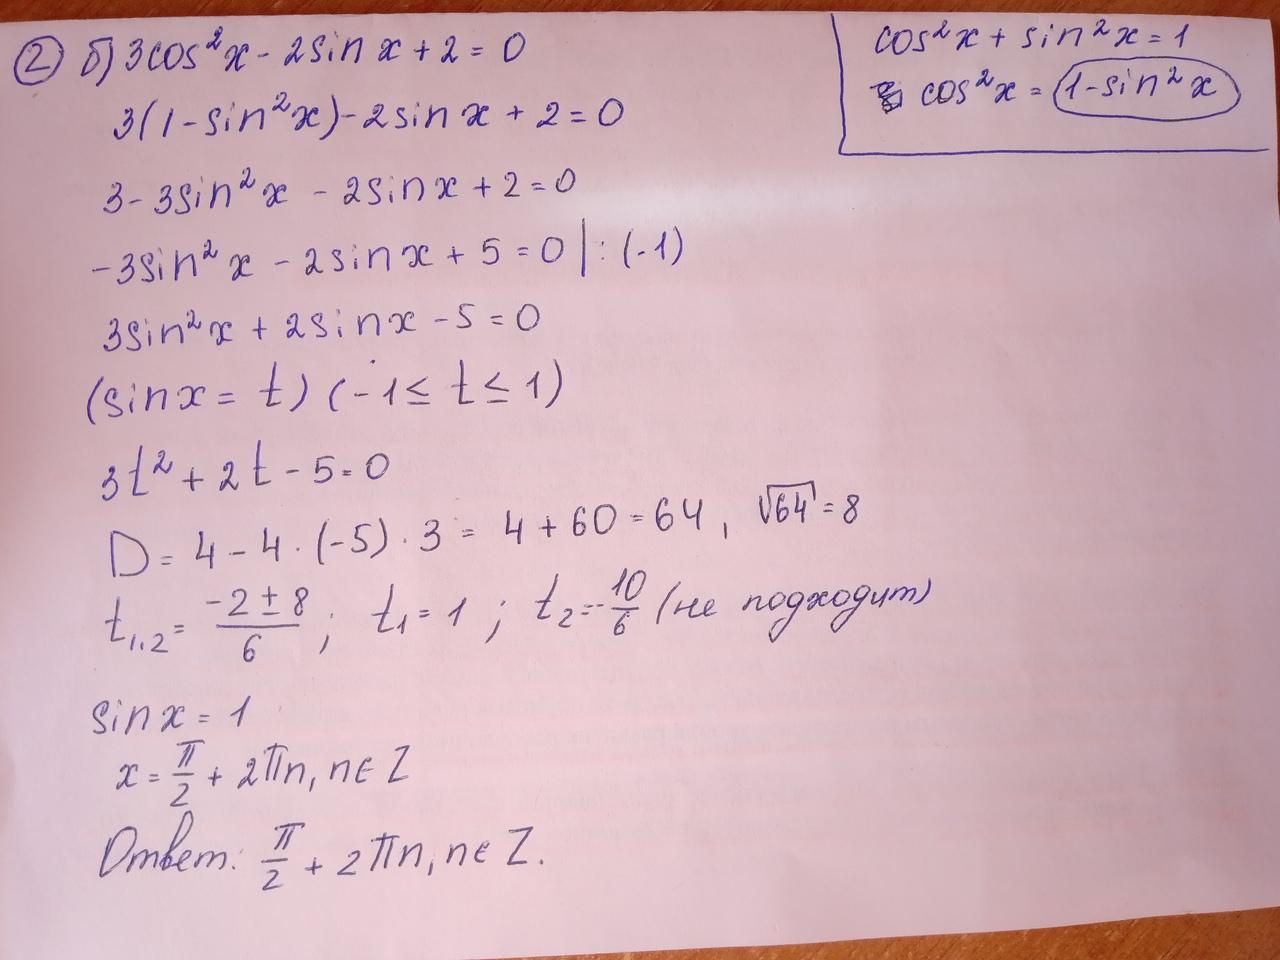 ② б) 3cos²x - 2sin x + 2 = 0
cos²x + sin²x = 1
cos²x = 1 - sin²x
3(1 - sin²x) - 2sin x + 2 = 0
3 - 3sin²x - 2sinx + 2 = 0
-3sin²x - 2sinx + 5 = 0 | : (-1)
3sin²x + 2sinx - 5 = 0
(sinx = t) (-1 ≤ t ≤ 1)
3t² + 2t - 5 = 0
D = 4 - 4 · (-5) · 3 = 4 + 60 = 64, √64 = 8
t₁,₂ = (-2 ± 8)/6 ; t₁ = 1 ; t₂ = -10/6 (не подходит)
sinx = 1
x = π/2 + 2πn, n ∈ Z
Ответ: π/2 + 2πn, n ∈ Z.